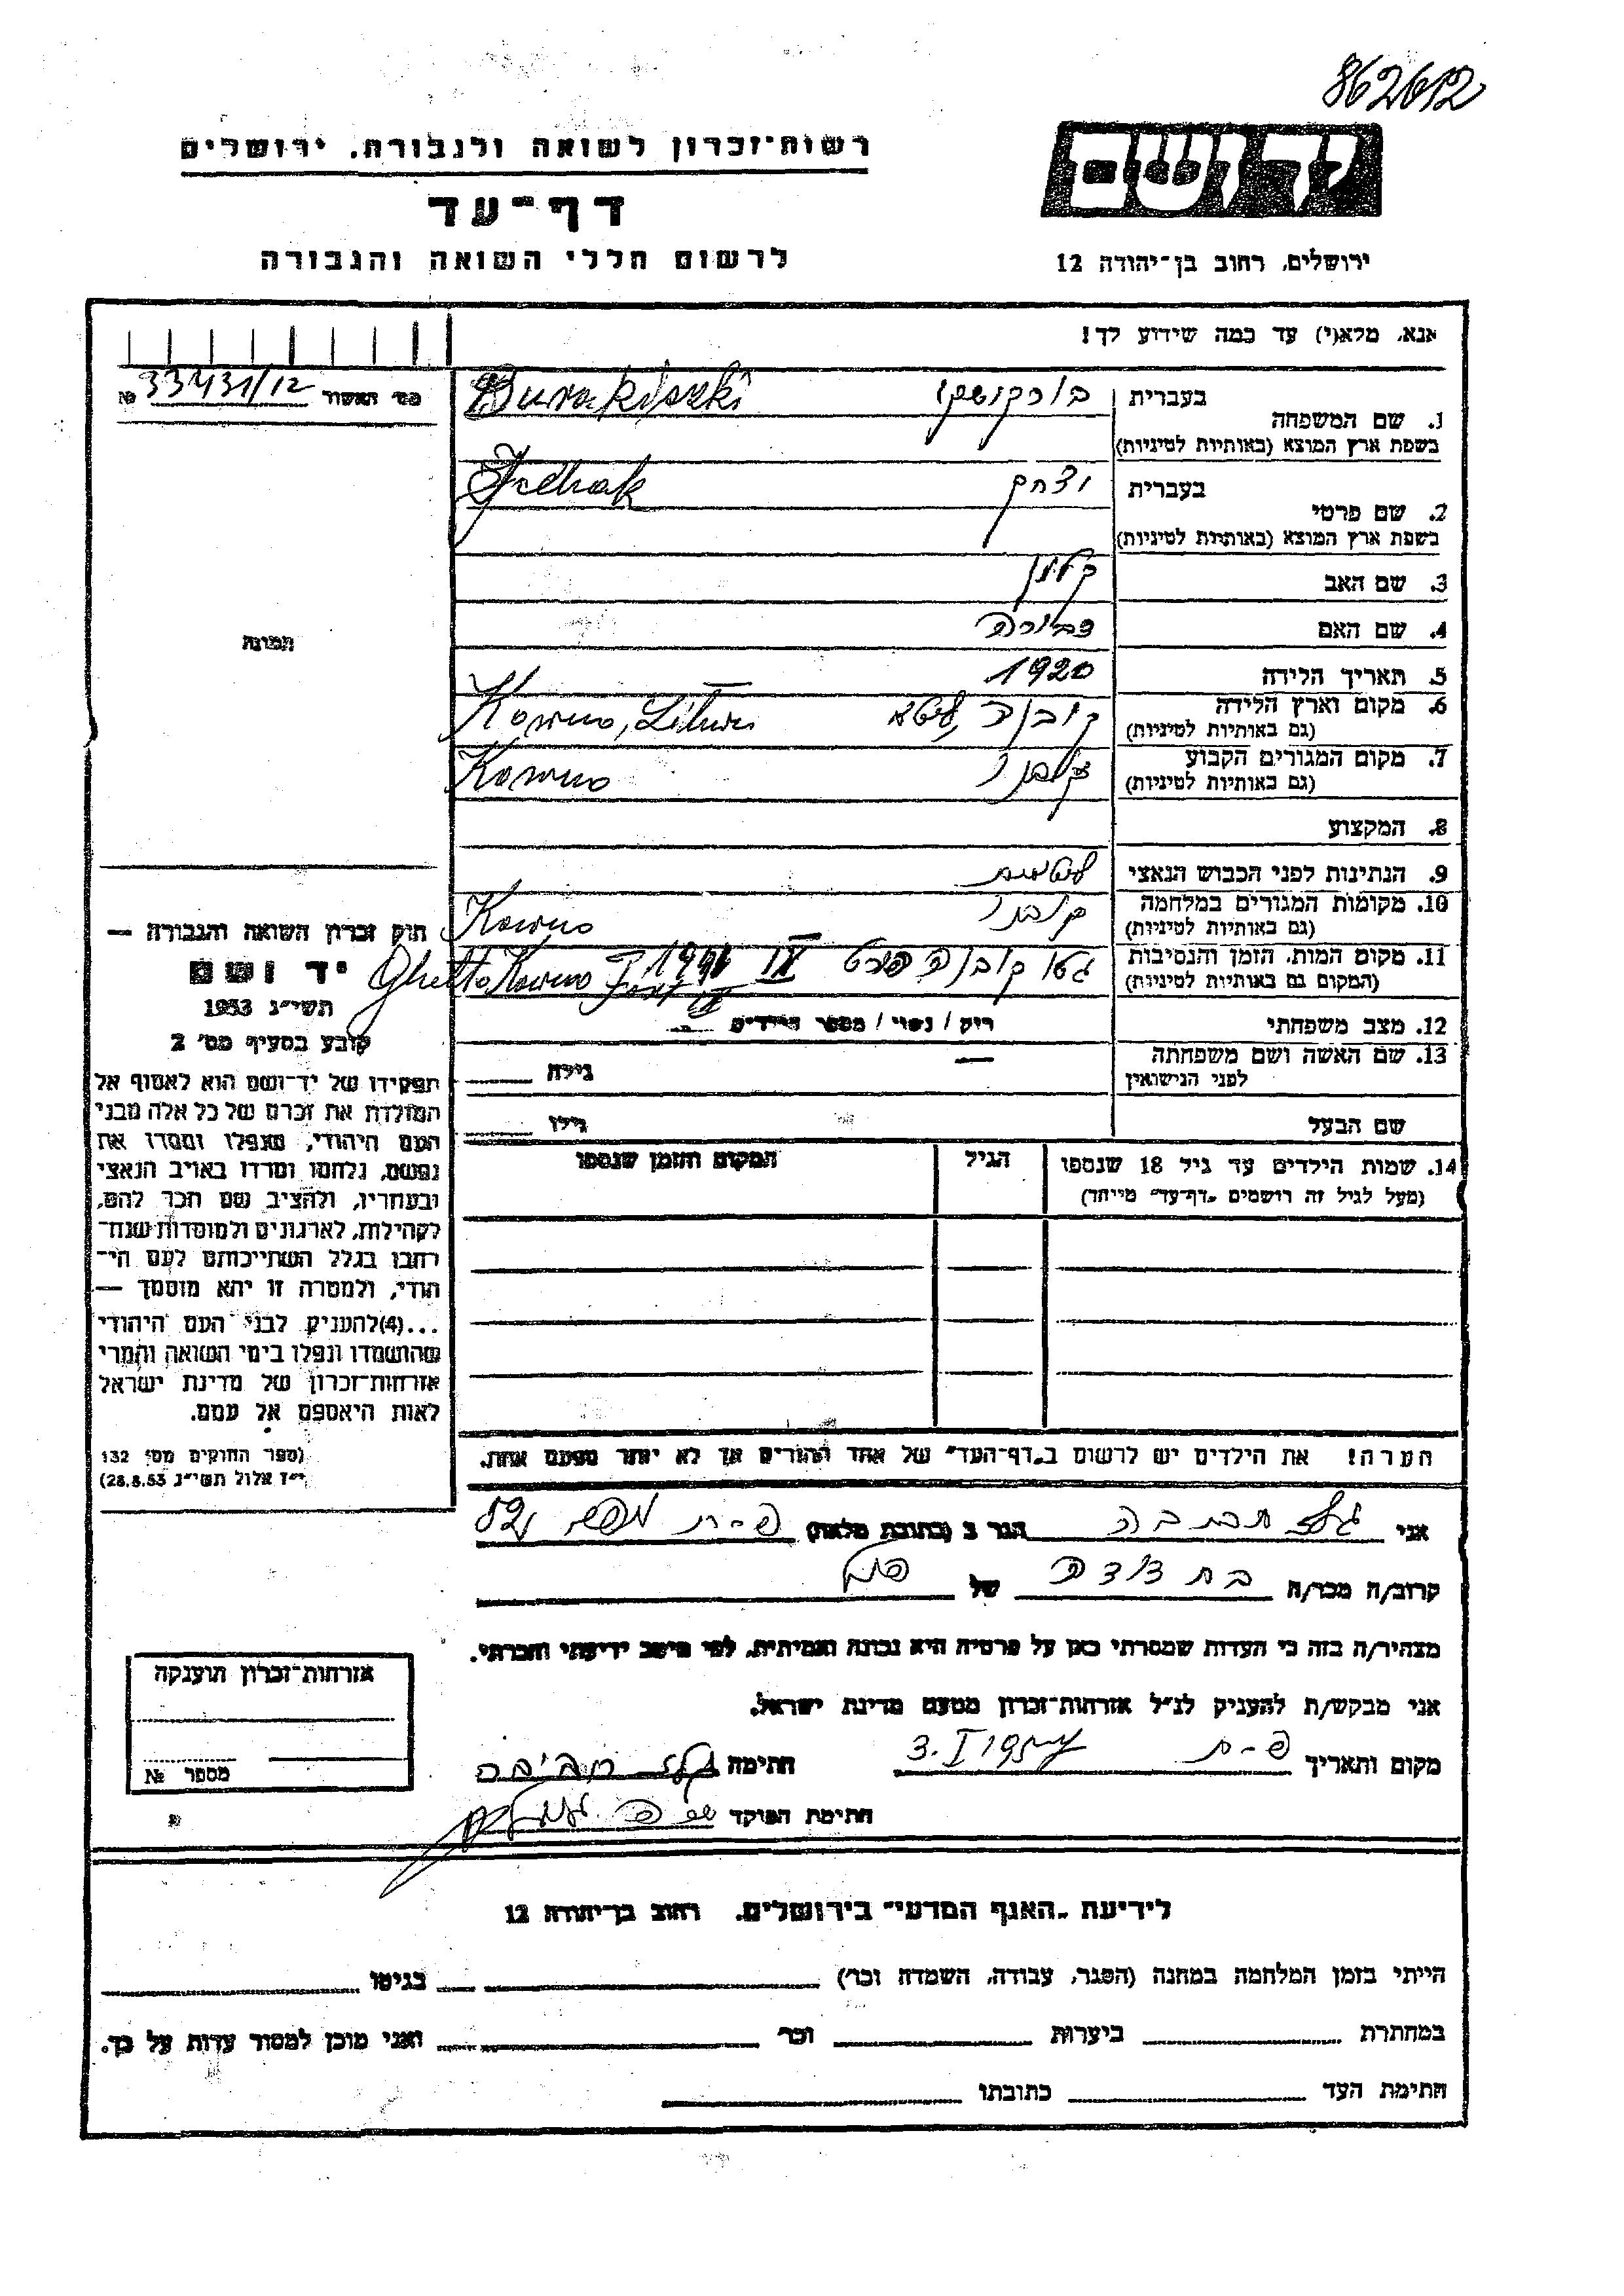 862612
רשות־זכרון לשואה ולגבורה. ירושלים
דף־עד
לרשום חללי השואה והגבורה
יד ושם
ירושלים, רחוב בן־יהודה 12
אנא, מלא(י) עד כמה שידוע לך!
מס׳ האשור 33431/12 №
תמונה
חוק זכרון השואה והגבורה —
יד ושם
תשי״ג 1953
קובע בסעיף מס׳ 2
תפקידו של יד־ושם הוא לאסוף אל
המולדת את זכרם של כל אלה מבני
העם היהודי, שנפלו ומסרו את
נפשם, נלחמו ומרדו באויב הנאצי
ובעוזריו, ולהציב שם וזכר להם,
לקהילות, לארגונים ולמוסדות שנח־
רבו בגלל השתייכותם לעם הי־
הודי, ולמטרה זו יהא מוסמך —
...(4) להעניק לבני העם היהודי
שהושמדו ונפלו בימי השואה והמרי
אזרחות־זכרון של מדינת ישראל
לאות היאספם אל עמם.
(ספר החוקים מס׳ 132
י״ז אלול תשי״ג 28.8.53)
1. שם המשפחה בעברית
בשפת ארץ המוצא (באותיות לטיניות)
Burakiszki
2. שם פרטי בעברית יצחק
בשפת ארץ המוצא (באותיות לטיניות)
Jzchak
3. שם האב
4. שם האם צביורה
5. תאריך הלידה 1920
6. מקום וארץ הלידה קובנה, ליטא Kowno,
(גם באותיות לטיניות)
7. מקום המגורים הקבוע Kowno
(גם באותיות לטיניות)
8. המקצוע
9. הנתינות לפני הכבוש הנאצי ליטאית
10. מקומות המגורים במלחמה Kowno
(גם באותיות לטיניות)
11. מקום המות, הזמן והנסיבות גטו קובנה פורט IX 1941 Ghetto Kowno Fort IX
(המקום גם באותיות לטיניות)
12. מצב משפחתי רוק / נשוי / מספר הילדים —
13. שם האשה ושם משפחתה — גילה
לפני הנישואין
שם הבעל גילו
14. שמות הילדים עד גיל 18 שנספו הגיל המקום והזמן שנספו
(מעל לגיל זה רושמים „דף־עד״ מיוחד)
הערה! את הילדים יש לרשום ב„דף־העד״ של אחד ההורים אך לא יותר מפעם אחת.
אני הגר ב (כתובת מלאה) פ-ת
קרוב/ה מכר/ה בת דודה של
מצהיר/ה בזה כי העדות שמסרתי כאן על פרטיה היא נכונה ואמיתית, לפי מיטב ידיעתי והכרתי.
אני מבקש/ת להעניק לנ״ל אזרחות־זכרון מטעם מדינת ישראל.
מקום ותאריך פ-ת 3.I חתימה
חתימת הפוקד
אזרחות־זכרון הוענקה
מספר №
לידיעת „האגף המדעי״ בירושלים. רחוב בן־יהודה 12
הייתי בזמן המלחמה במחנה (הסגר, עבודה, השמדה וכו׳) בגיטו
במחתרת ביערות וכו׳ ואני מוכן למסור עדות על כך.
חתימת העד כתובתו